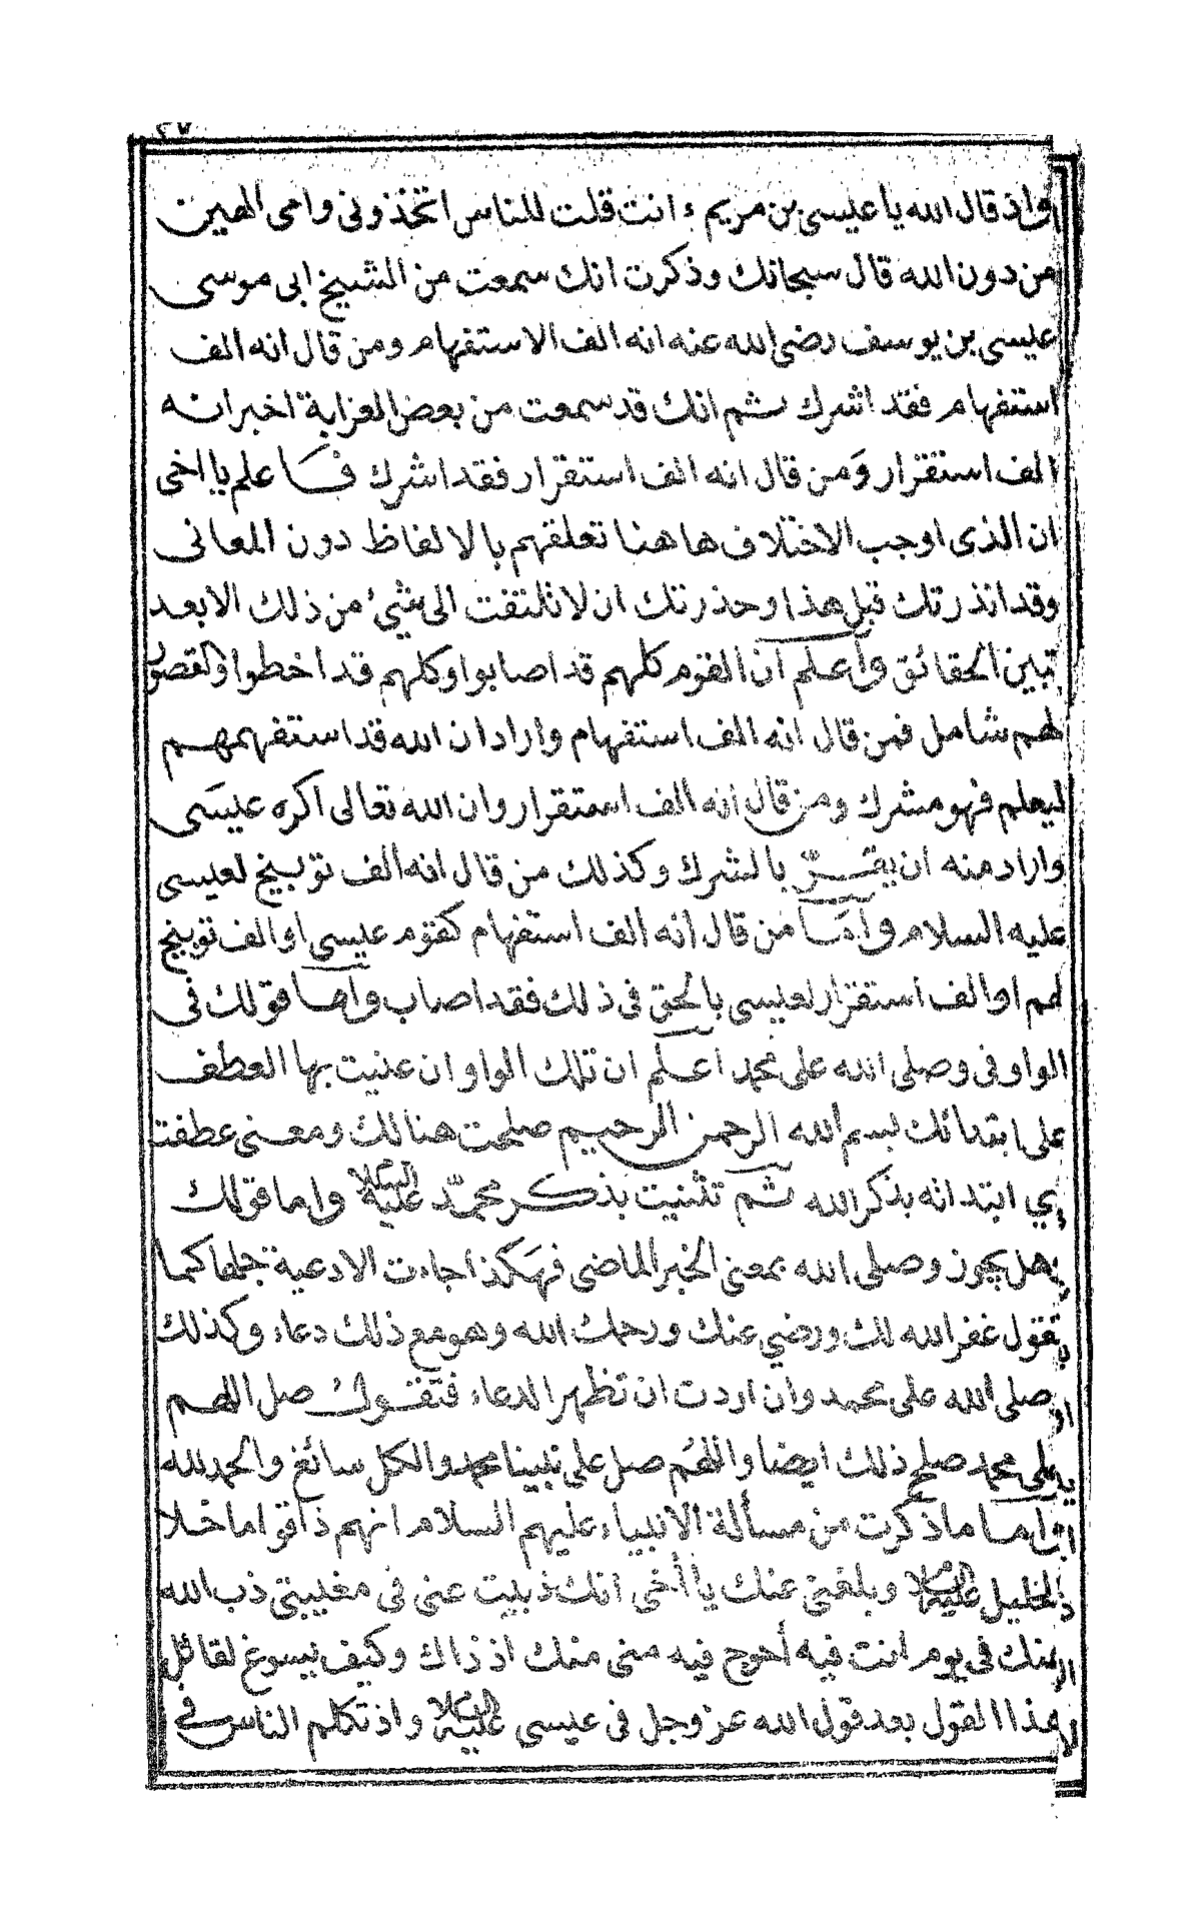 ٢٧
واذ قال الله يا عيسى بن مريم ء انت قلت للناس اتخذونى وامى الهين
من دون الله قال سبحانك وذكرت انك سمعت من الشيخ ابى موسى
عيسى بن يوسف رضى الله عنه انه الف الاستفهام ومن قال انه الف
استفهام فقد اشرك ثم انك قد سمعت من بعض العزابة اخبر انه
الف استقرار ومن قال انه الف استقرار فقد اشرك فاعلم يا اخى
ان الذى اوجب الاختلاف هاهنا تعلقهم بالالفاظ دون المعانى
وقد انذرتك قبل هذا وحذرتك ان لا تلتفت الى شيء من ذلك الا بعد
تبين الحقائق واعلم ان القوم كلهم قد اصابوا وكلهم قد اخطوا والقصور
لهم شامل فمن قال انه الف استفهام واراد ان الله قد استفهمهم
ليعلم فهو مشرك ومن قال انه الف استقرار وان الله تعالى اكره عيسى
واراد منه ان يقر بالشرك وكذلك من قال انه الف توبيخ لعيسى
عليه السلام واما من قال انه الف استفهام كقوم عيسى او الف توبيخ
لهم او الف استقرار لعيسى بالحق فى ذلك فقد اصاب واما قولك فى
الواو فى وصلى الله على محمد اعلم ان تلك الواو ان عنيت بها العطف
على ابتدائك بسم الله الرحمن الرحيم صلحت هنالك ومعنى عطفت
اي ابتدانه بذكر الله ثم تثنيت بذكر محمد عليه السلام واما قولك
هل يجوز وصلى الله بمعنى الخبر الماضى فهكذا جاءت الادعية جلها كما
تقول غفر الله لك ورضي عنك ورحمك الله وهو مع ذلك دعاء وكذلك
صلى الله على محمد وان اردت ان تظهر الدعاء فتقول صل اللهم
على محمد صلح ذلك ايضا واللهم صل على نبينا محمد والكل سائغ والحمد لله
واما ما ذكرت من مسألة الانبياء عليهم السلام انهم ذاقوا ما خلا
الخليل عليه السلام وبلغنى عنك يا أخى انك ذبيت عنى فى مغيبتى ذب الله
عنك فى يوم انت فيه أحوج فيه منى منك اذ ذاك وكيف يسوغ لقائل
هذا القول بعد قول الله عز وجل فى عيسى عليه السلام واذ تكلم الناس فى